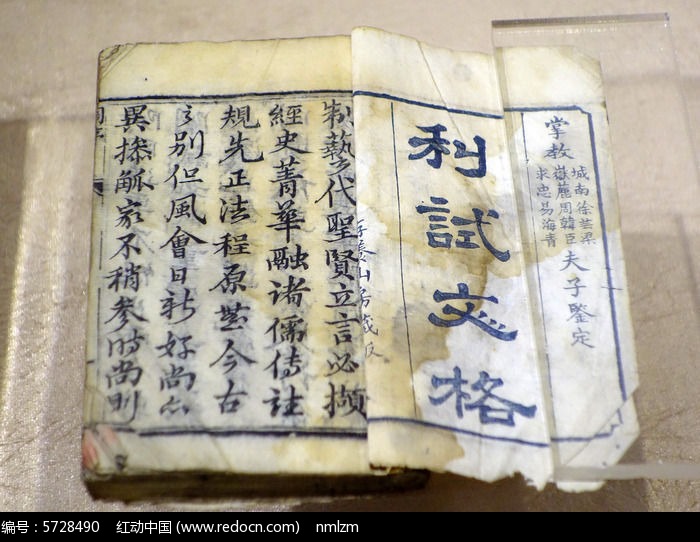 掌教
城南徐芸
嶽麓周韓臣
求忠易海青
夫子鑒定
利試文格
山房藏板
制藝代聖賢立言必擷
經史菁華融諸儒傳註
規先正法程原無今古
之別但風會日新好尚
異操觚家不稍參時尚則
编号：5728490 红动中国 (www.redocn.com) nmlzm